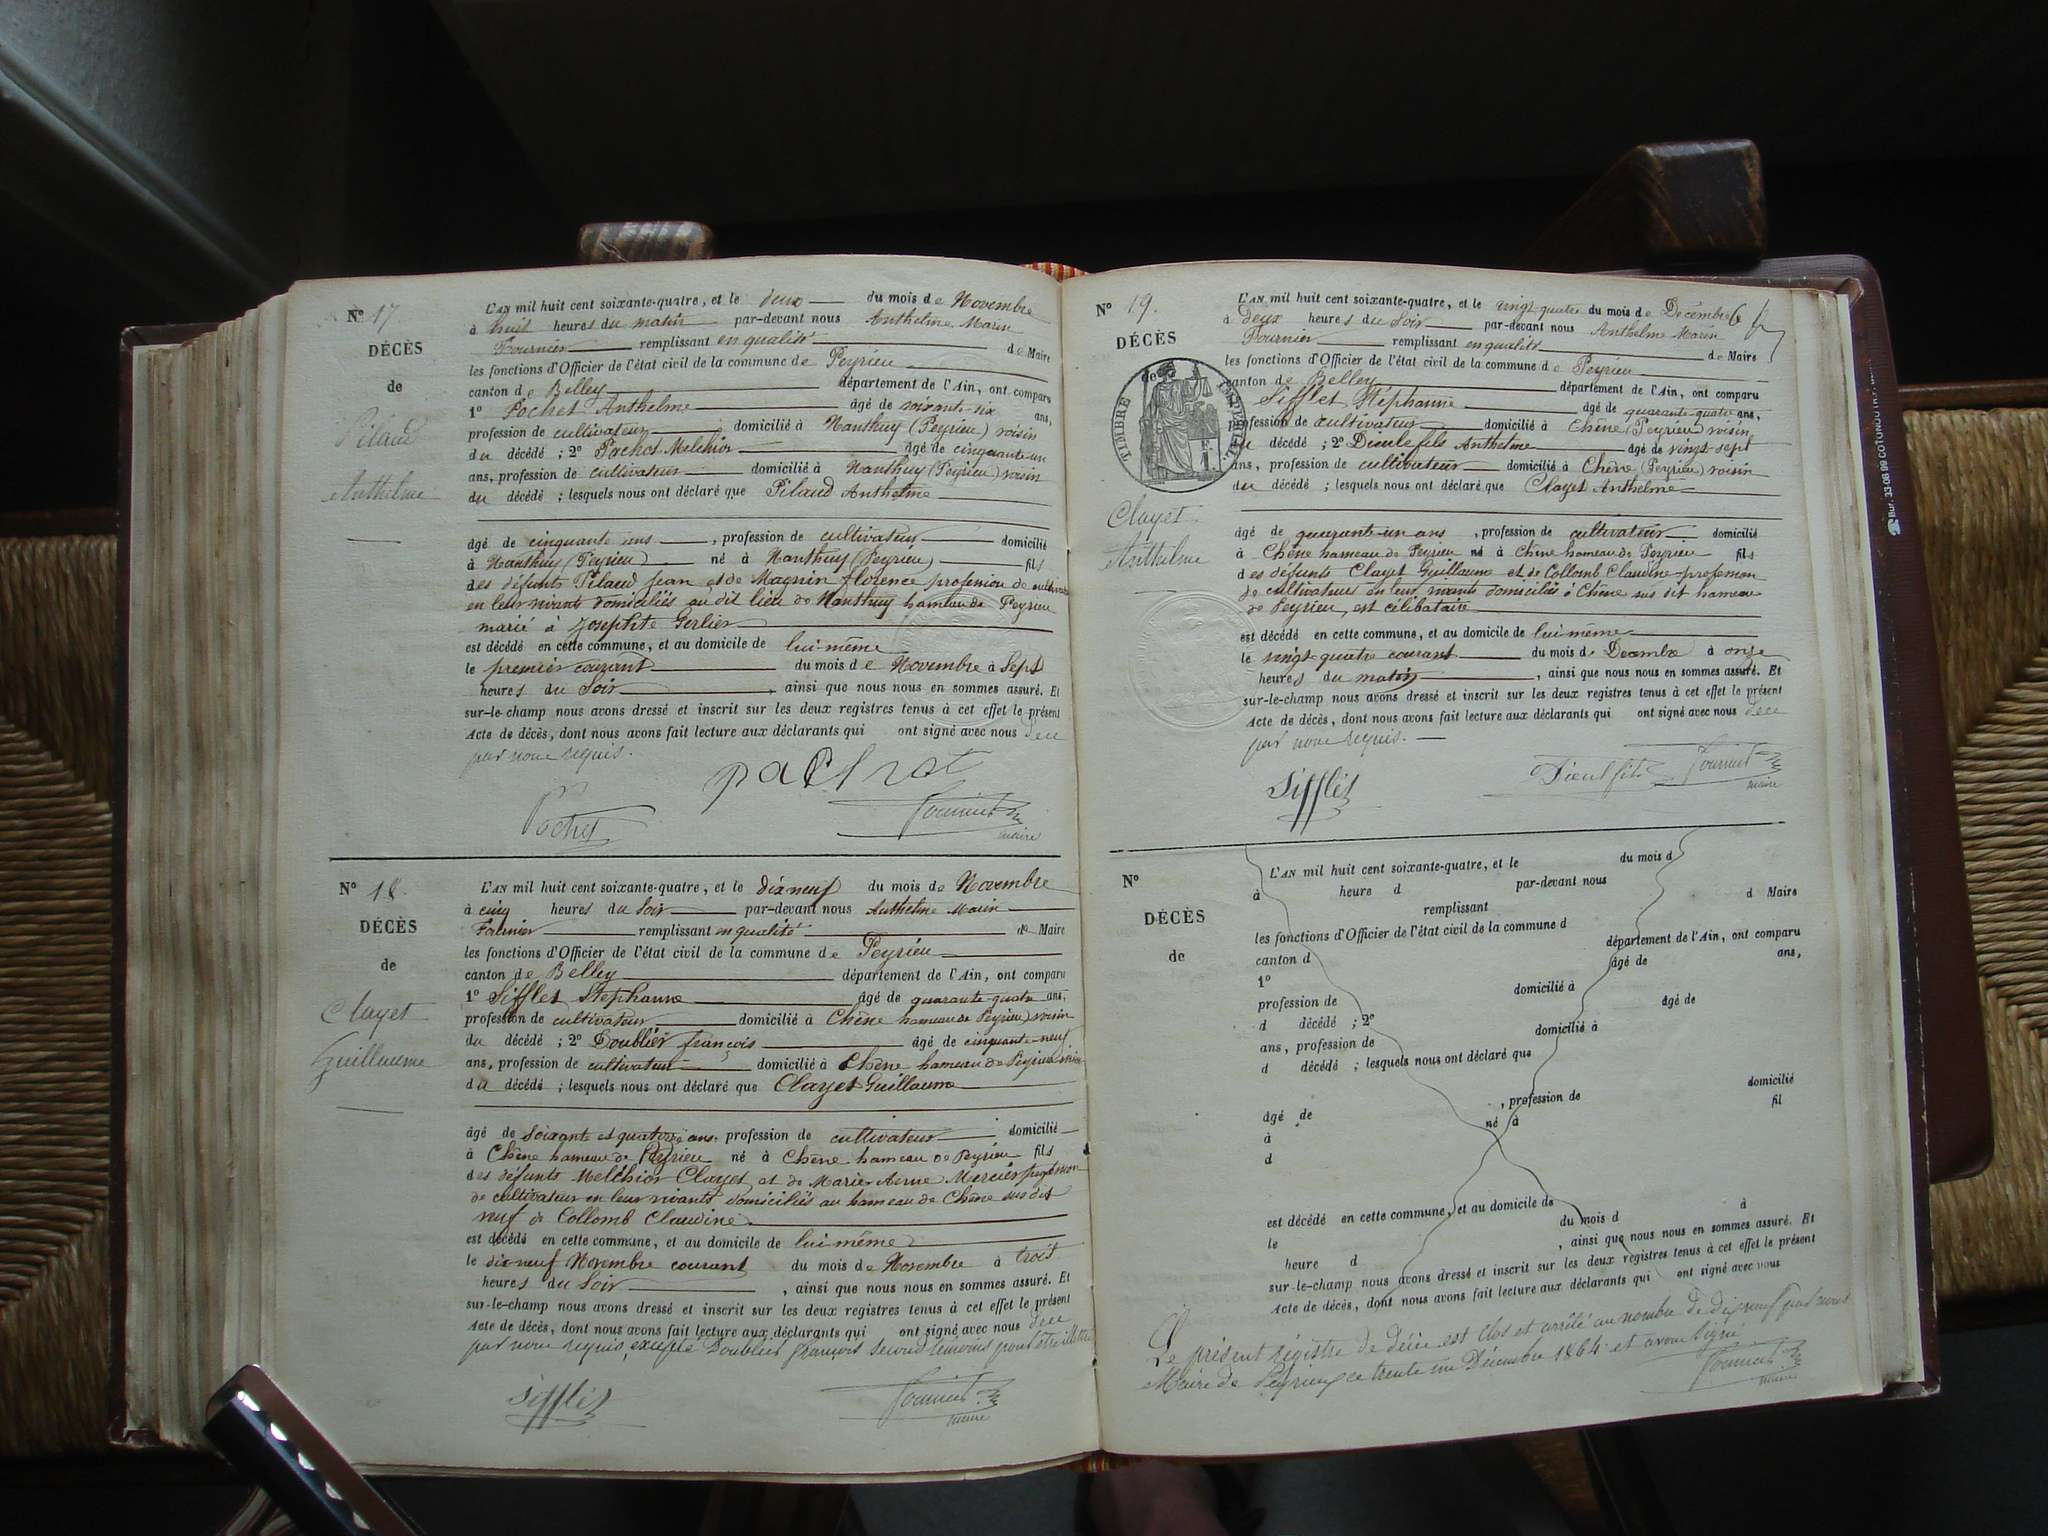 Nº 17
DÉCÈS
de
Pilaud
Anthelme
L'AN mil huit cent soixante-quatre, et le deux du mois de Novembre
à huit heures du matin par-devant nous Anthelme Marin
Fournier remplissant en qualité de Maire
les fonctions d'Officier de l'état civil de la commune de Peyrieu
canton de Belley département de l'Ain, ont comparu
1º Pochet Anthelme âgé de soixante-six ans,
profession de cultivateur domicilié à Nanthuy (Peyrieu) voisin
du décédé ; 2º Pachot Melchior âgé de cinquante-un
ans, profession de cultivateur domicilié à Nanthuy (Peyrieu) voisin
du décédé ; lesquels nous ont déclaré que Pilaud Anthelme
âgé de cinquante ans, profession de cultivateur domicilié
à Nanthuy (Peyrieu) né à Nanthuy (Peyrieu) fils
des défunts Pilaud Jean et de Magnin florence profession de cultivateurs
en leur vivants domiciliés au dit lieu de Nanthuy hameau de Peyrieu
marié à Josephte Gerlier
est décédé en cette commune, et au domicile de lui-même
le premier courant du mois de Novembre à Sept
heures du Soir, ainsi que nous nous en sommes assuré. Et
sur-le-champ nous avons dressé et inscrit sur les deux registres tenus à cet effet le présent
Acte de décès, dont nous avons fait lecture aux déclarants qui ont signé avec nous de ce
par nous requis.
pachot
Pochet
Fournier
maire
Nº 18.
DÉCÈS
de
Clayet
Guillaume
L'AN mil huit cent soixante-quatre, et le dix neuf du mois de Novembre
à cinq heures du Soir par-devant nous Anthelme Marin
Fournier remplissant en qualité de Maire
les fonctions d'Officier de l'état civil de la commune de Peyrieu
canton de Belley département de l'Ain, ont comparu
1º Sifflet Stéphanne âgé de quarante-quatre ans,
profession de cultivateur domicilié à Chêne hameau de Peyrieu) voisin
du décédé ; 2º Doublier françois âgé de cinquante-neuf
ans, profession de cultivateur domicilié à Chêne hameau de Peyrieu
du décédé ; lesquels nous ont déclaré que Clayet Guillaume
âgé de Soixante et quatorze ans, profession de cultivateur domicilié
à Chêne hameau de Peyrieu né à Chêne hameau de Peyrieu fils
des défunts Melchior Clayet et de Marie Anne Mercier profession
de cultivateur en leur vivants domiciliés au hameau de Chêne sus dit
veuf de Collomb Claudine
est décédé en cette commune, et au domicile de lui-même
le dix neuf Novembre courant du mois de Novembre à trois
heures du Soir, ainsi que nous nous en sommes assuré. Et
sur-le-champ nous avons dressé et inscrit sur les deux registres tenus à cet effet le présent
Acte de décès, dont nous avons fait lecture aux déclarants qui ont signé avec nous de ce
par nous requis, excepté Doublier françois second témoins pour être illettré
Sifflet
Fournier
maire
Nº 19.
DÉCÈS
de
TIMBRE IMPERIAL
Clayet
Anthelme
L'AN mil huit cent soixante-quatre, et le vingt quatre du mois de Décembre
à deux heures du Soir par-devant nous Anthelme Marin
Fournier remplissant en qualité de Maire
les fonctions d'Officier de l'état civil de la commune de Peyrieu
canton de Belley département de l'Ain, ont comparu
Sifflet Stéphanne âgé de quarante-quatre ans,
profession de cultivateur domicilié à Chêne (Peyrieu) voisin
du décédé ; 2º Dieulefils Anthelme âgé de vingt-sept
ans, profession de cultivateur domicilié à Chêne (Peyrieu) voisin
du décédé ; lesquels nous ont déclaré que Clayet Anthelme
âgé de quarante-un ans, profession de cultivateur domicilié
à Chêne hameau de Peyrieu né à Chêne hameau de Peyrieu fils
des défunts Clayet Guillaume et de Collomb Claudine profession
de cultivateurs en leur vivants domiciliés à Chêne sus dit hameau
de Peyrieu, est célibataire
est décédé en cette commune, et au domicile de lui-même
le vingt-quatre courant du mois de Décembre à onze
heures du matin, ainsi que nous nous en sommes assuré. Et
sur-le-champ nous avons dressé et inscrit sur les deux registres tenus à cet effet le présent
Acte de décès, dont nous avons fait lecture aux déclarants qui ont signé avec nous de ce
par nous requis.
Sifflet
Fournier
maire
Nº
DÉCÈS
de
L'AN mil huit cent soixante-quatre, et le du mois d
à heure d par-devant nous
remplissant d Maire
les fonctions d'Officier de l'état civil de la commune d
canton d département de l'Ain, ont comparu
1º âgé de ans,
profession de domicilié à
d décédé ; 2º âgé de
ans, profession de domicilié à
d décédé ; lesquels nous ont déclaré que
âgé de , profession de domicilié
à né à fil
d
est décédé en cette commune, et au domicile de
le du mois d à
heure d , ainsi que nous nous en sommes assuré. Et
sur-le-champ nous avons dressé et inscrit sur les deux registres tenus à cet effet le présent
Acte de décès, dont nous avons fait lecture aux déclarants qui ont signé avec nous
Le présent régistre de décès est clos et arrêté au nombre de dix neuf par nous
Maire de Peyrieu, ce trente un Décembre 1864 et avons Signé
Fournier
maire